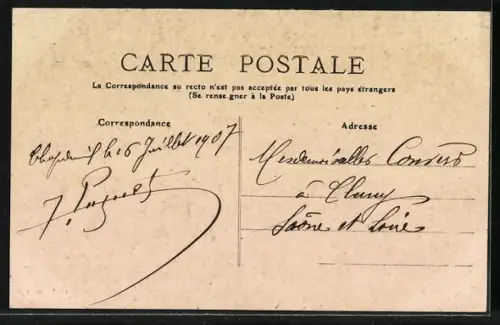 CARTE POSTALE
La Correspondance au recto n'est pas acceptée par tous les pays étrangers
(Se renseigner à la Poste)
Correspondance
Adresse
le 26 Juillet 1907
Mesdemoiselles
à Cluny
Saône et Loire